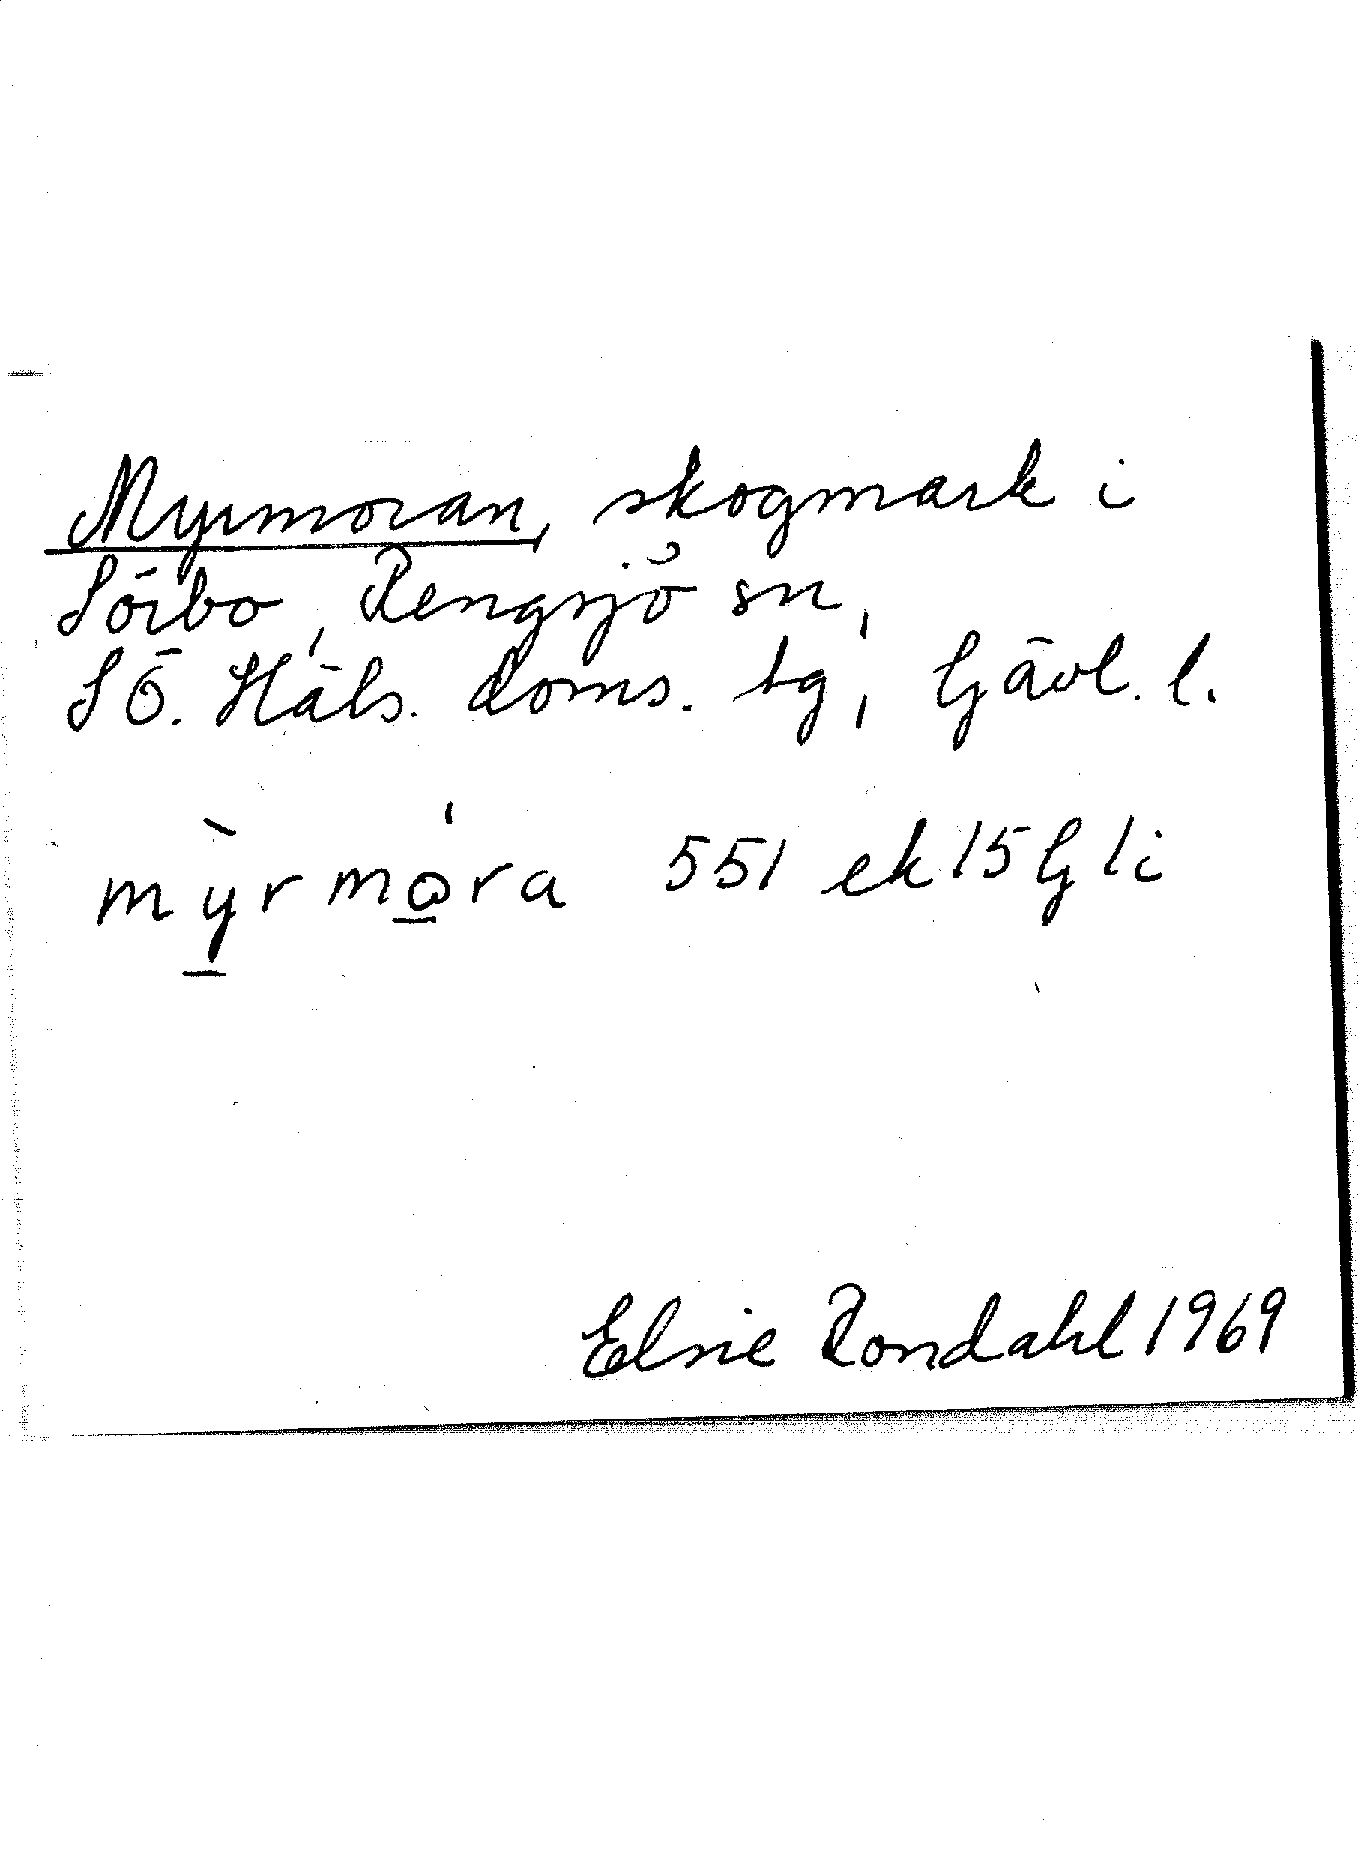 Myrmoran, skogmark i
Sörbo, Rengsjö sn,
SÖ. Häls. doms. tg, Gävl. l.
mỳrmɷ́ra 551 ek 15 G 1 i
Elsie Rondahl 1969